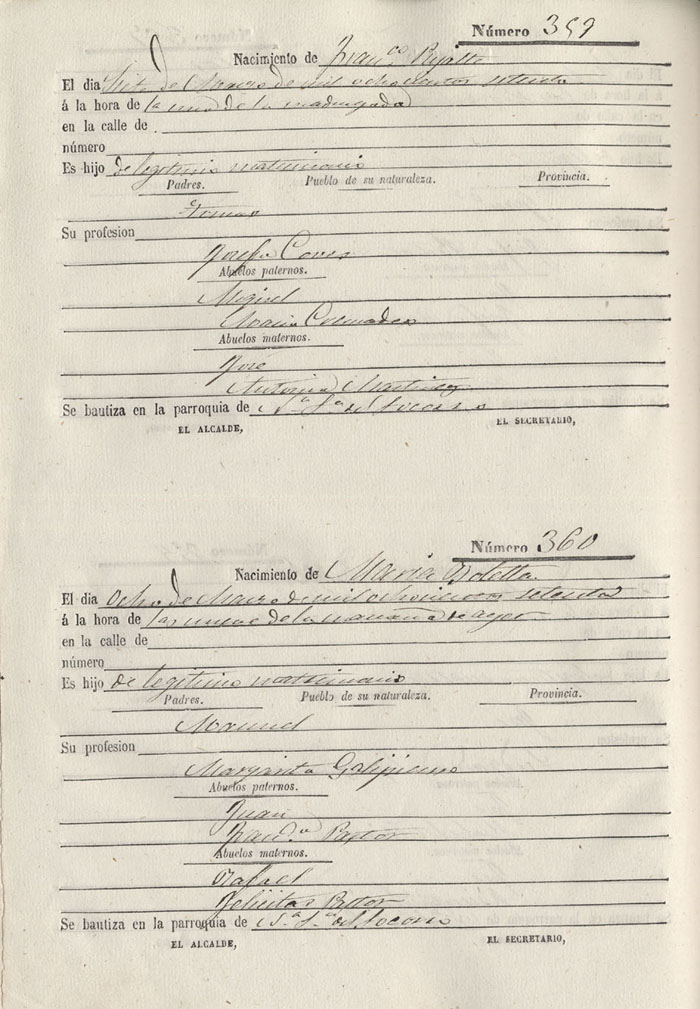 Número 359
Nacimiento de Fran.co
El dia Siete de Marzo de mil ochocientos setenta
á la hora de la una de la madrugada
en la calle de
número
Es hijo de legitimo matrimonio
Padres. Pueblo de su naturaleza. Provincia.
Tomas
Su profesion
Josefa
Abuelos paternos.
Miguel
Maria
Abuelos maternos.
José
Antonia Martinez
Se bautiza en la parroquia de N.a S.a del Socorro
EL ALCALDE, EL SECRETARIO,
Número 360
Nacimiento de Maria Botella.
El dia Ocho de Marzo de mil ochocientos setenta
á la hora de las nueve de la mañana de ayer
en la calle de
número
Es hijo de legitimo matrimonio
Padres. Pueblo de su naturaleza. Provincia.
Manuel
Su profesion
Margarita
Abuelos paternos.
Juan
Fran.ca Pastor
Abuelos maternos.
Rafael
Felicitas
Se bautiza en la parroquia de N.a S.a del Socorro
EL ALCALDE, EL SECRETARIO,